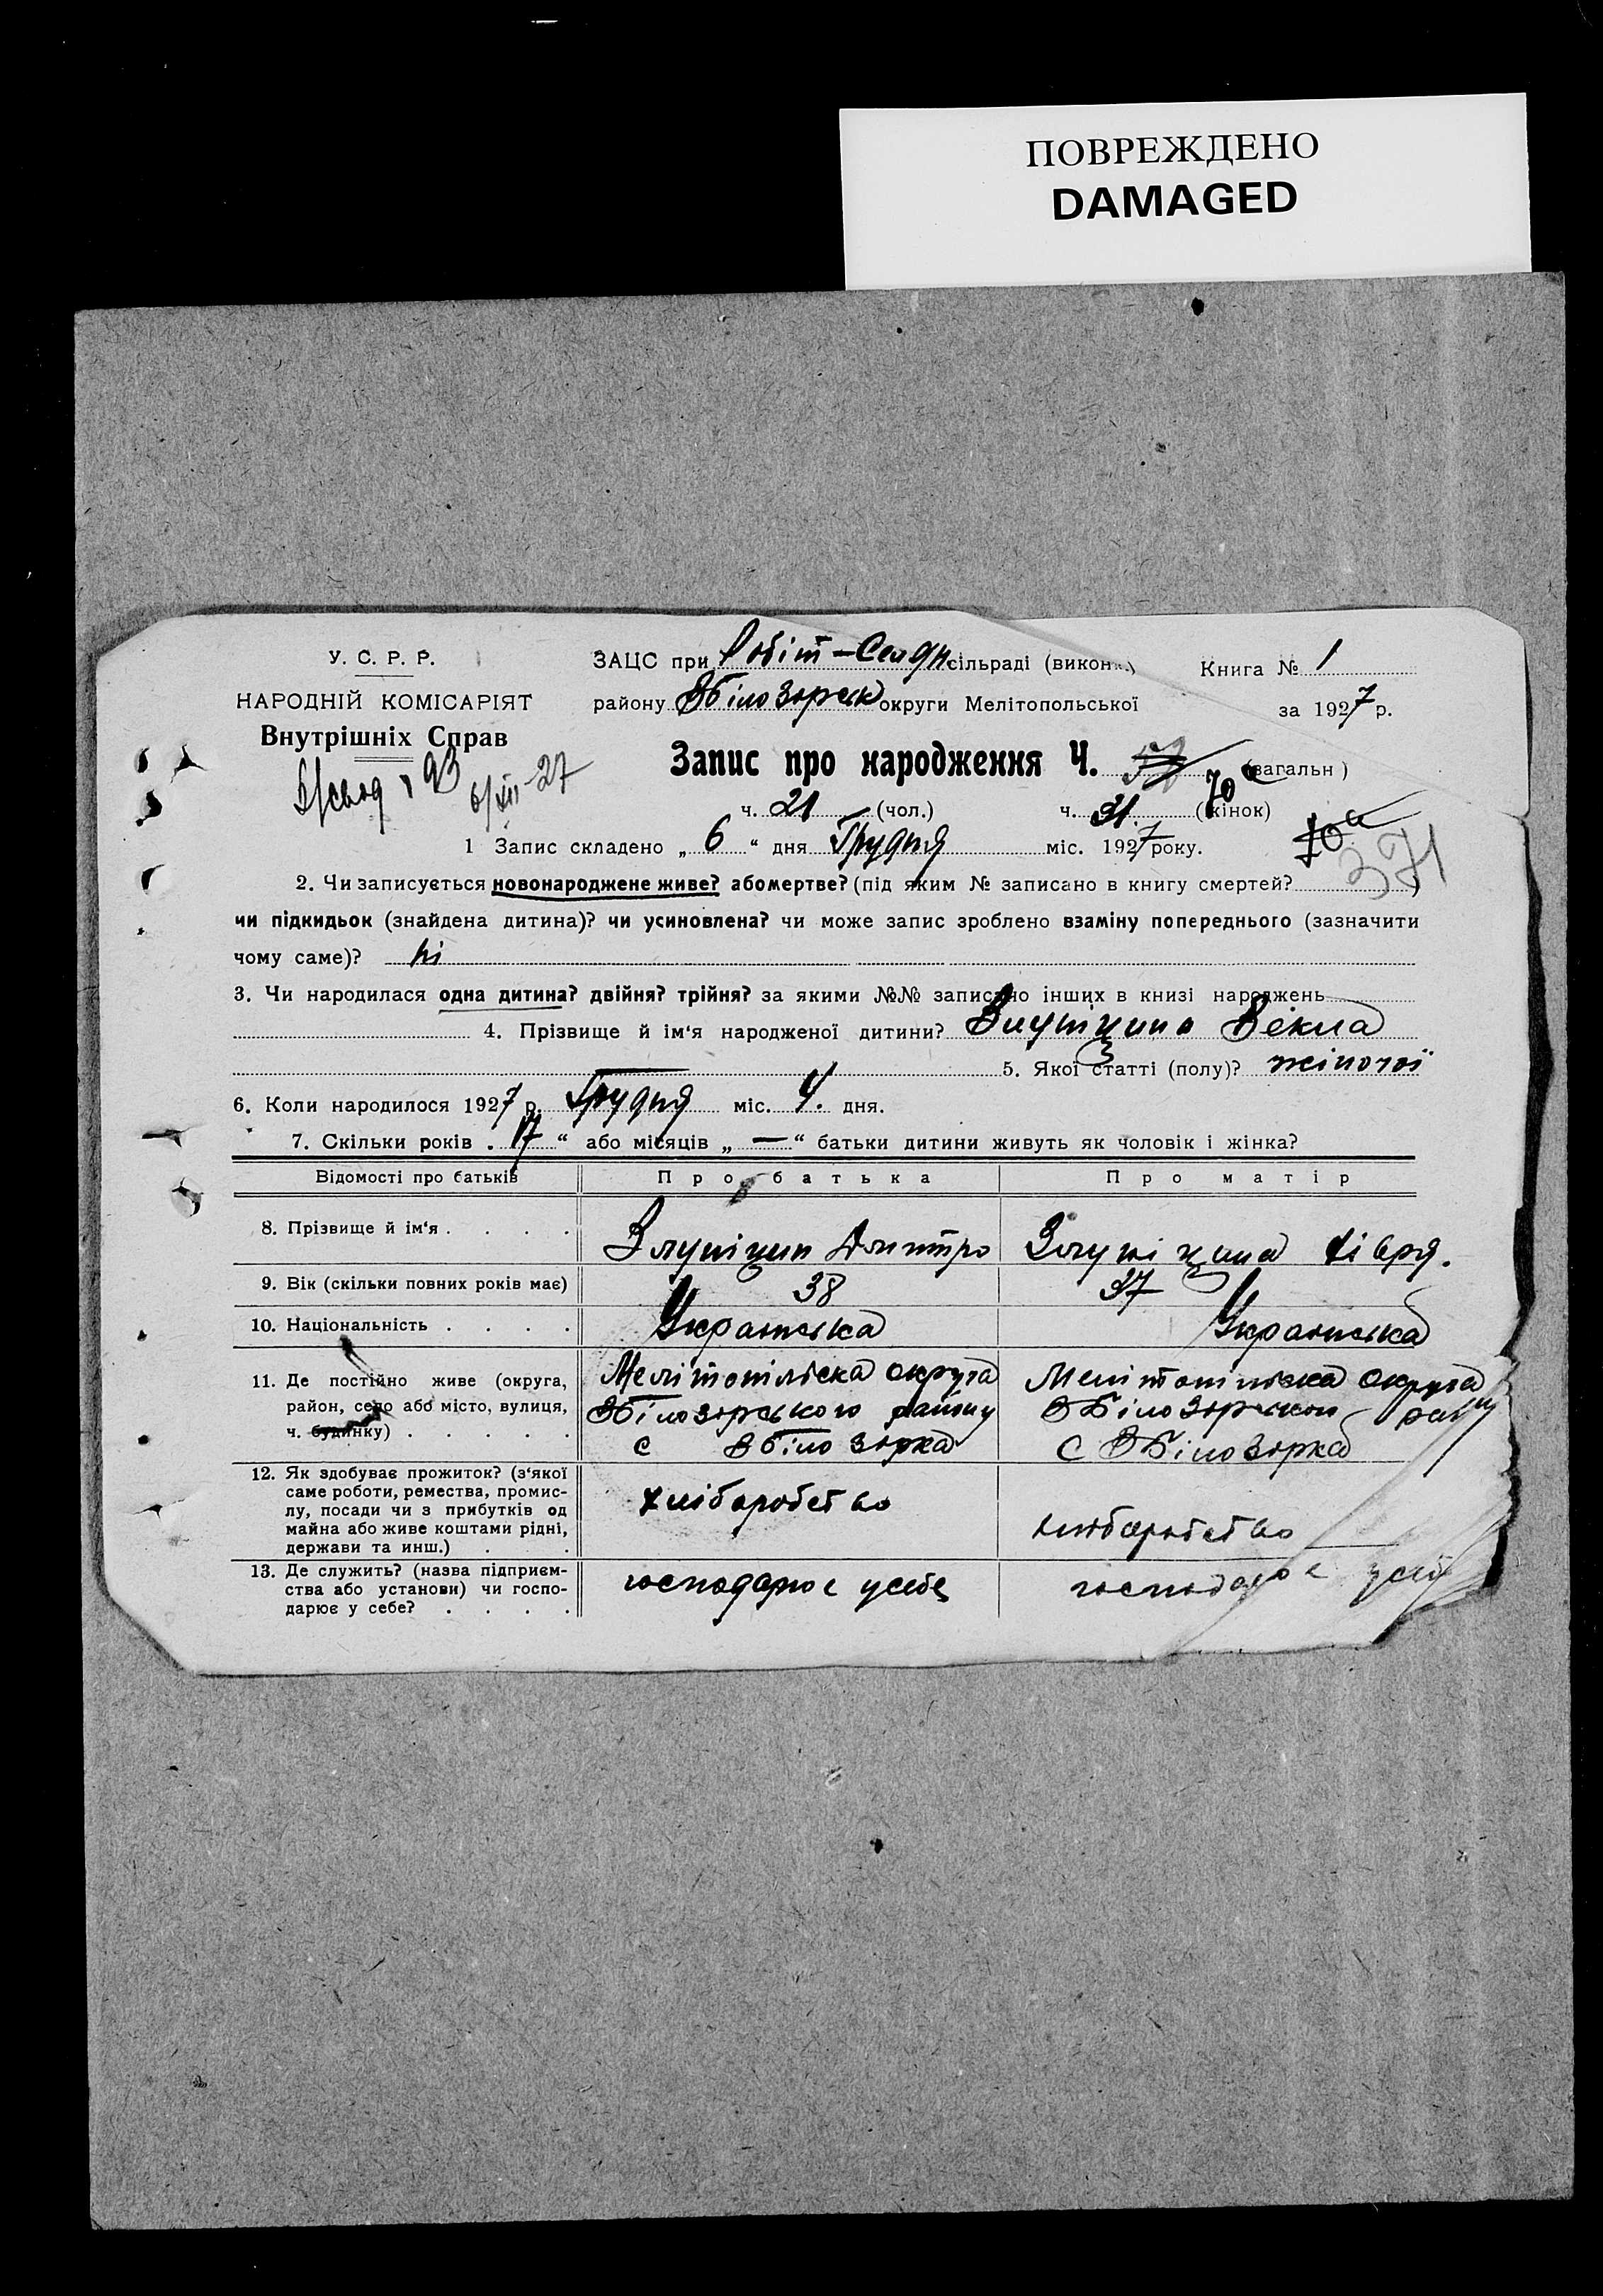 ПОВРЕЖДЕНО
DAMAGED
У. С. Р. Р.
НАРОДНІЙ КОМІСАРІЯТ
Внутрішніх Справ
93 6/XII-27
ЗАЦС при Робіт-Селян сільраді (викон.)
району ВБілозорськ округи Мелітопольської
Книга № 1
за 1927 р.
Запис про народження Ч. 70а (загальн)
ч. 21 (чол.) ч. 31. (жінок)
70а
371
1 Запис складено „ 6 “ дня Грудня міс. 1927 року.
2. Чи записується новонароджене живе? або мертве? (під яким № записано в книгу смертей? )
чи підкидьок (знайдена дитина)? чи усиновлена? чи може запис зроблено взаміну попереднього (зазначити
чому саме)? ні
3. Чи народилася одна дитина? двійня? трійня? за якими №№ записано інших в книзі народжень
4. Прізвище й ім'я народженої дитини? Векла
5. Якої статті (полу)? жіночої
6. Коли народилося 1927 р. Грудня міс. 4. дня.
7. Скільки років „ 17 “ або місяців „ — “ батьки дитини живуть як чоловік і жінка?
Відомості про батьків Про батька Про матір
8. Прізвище й ім'я . . . . Дмитро
9. Вік (скільки повних років має) 38 37
10. Національність . . . . Українська Українська
11. Де постійно живе (округа,
район, село або місто, вулиця,
ч. будинку) . . . . .
Мелітопільска округа
ВБілозорського району
с ВБілозорка
Мелітопільска округа
ВБілозорського району
С ВБілозорка
12. Як здобуває прожиток? (з'якої
саме роботи, ремества, промис-
лу, посади чи з прибутків од
майна або живе коштами рідні,
держави та инш.) . .
хліборобство
хліборобство
13. Де служить? (назва підприєм-
ства або установи) чи госпо-
дарює у себе? . . . .
господарює усебе
господарює усебе